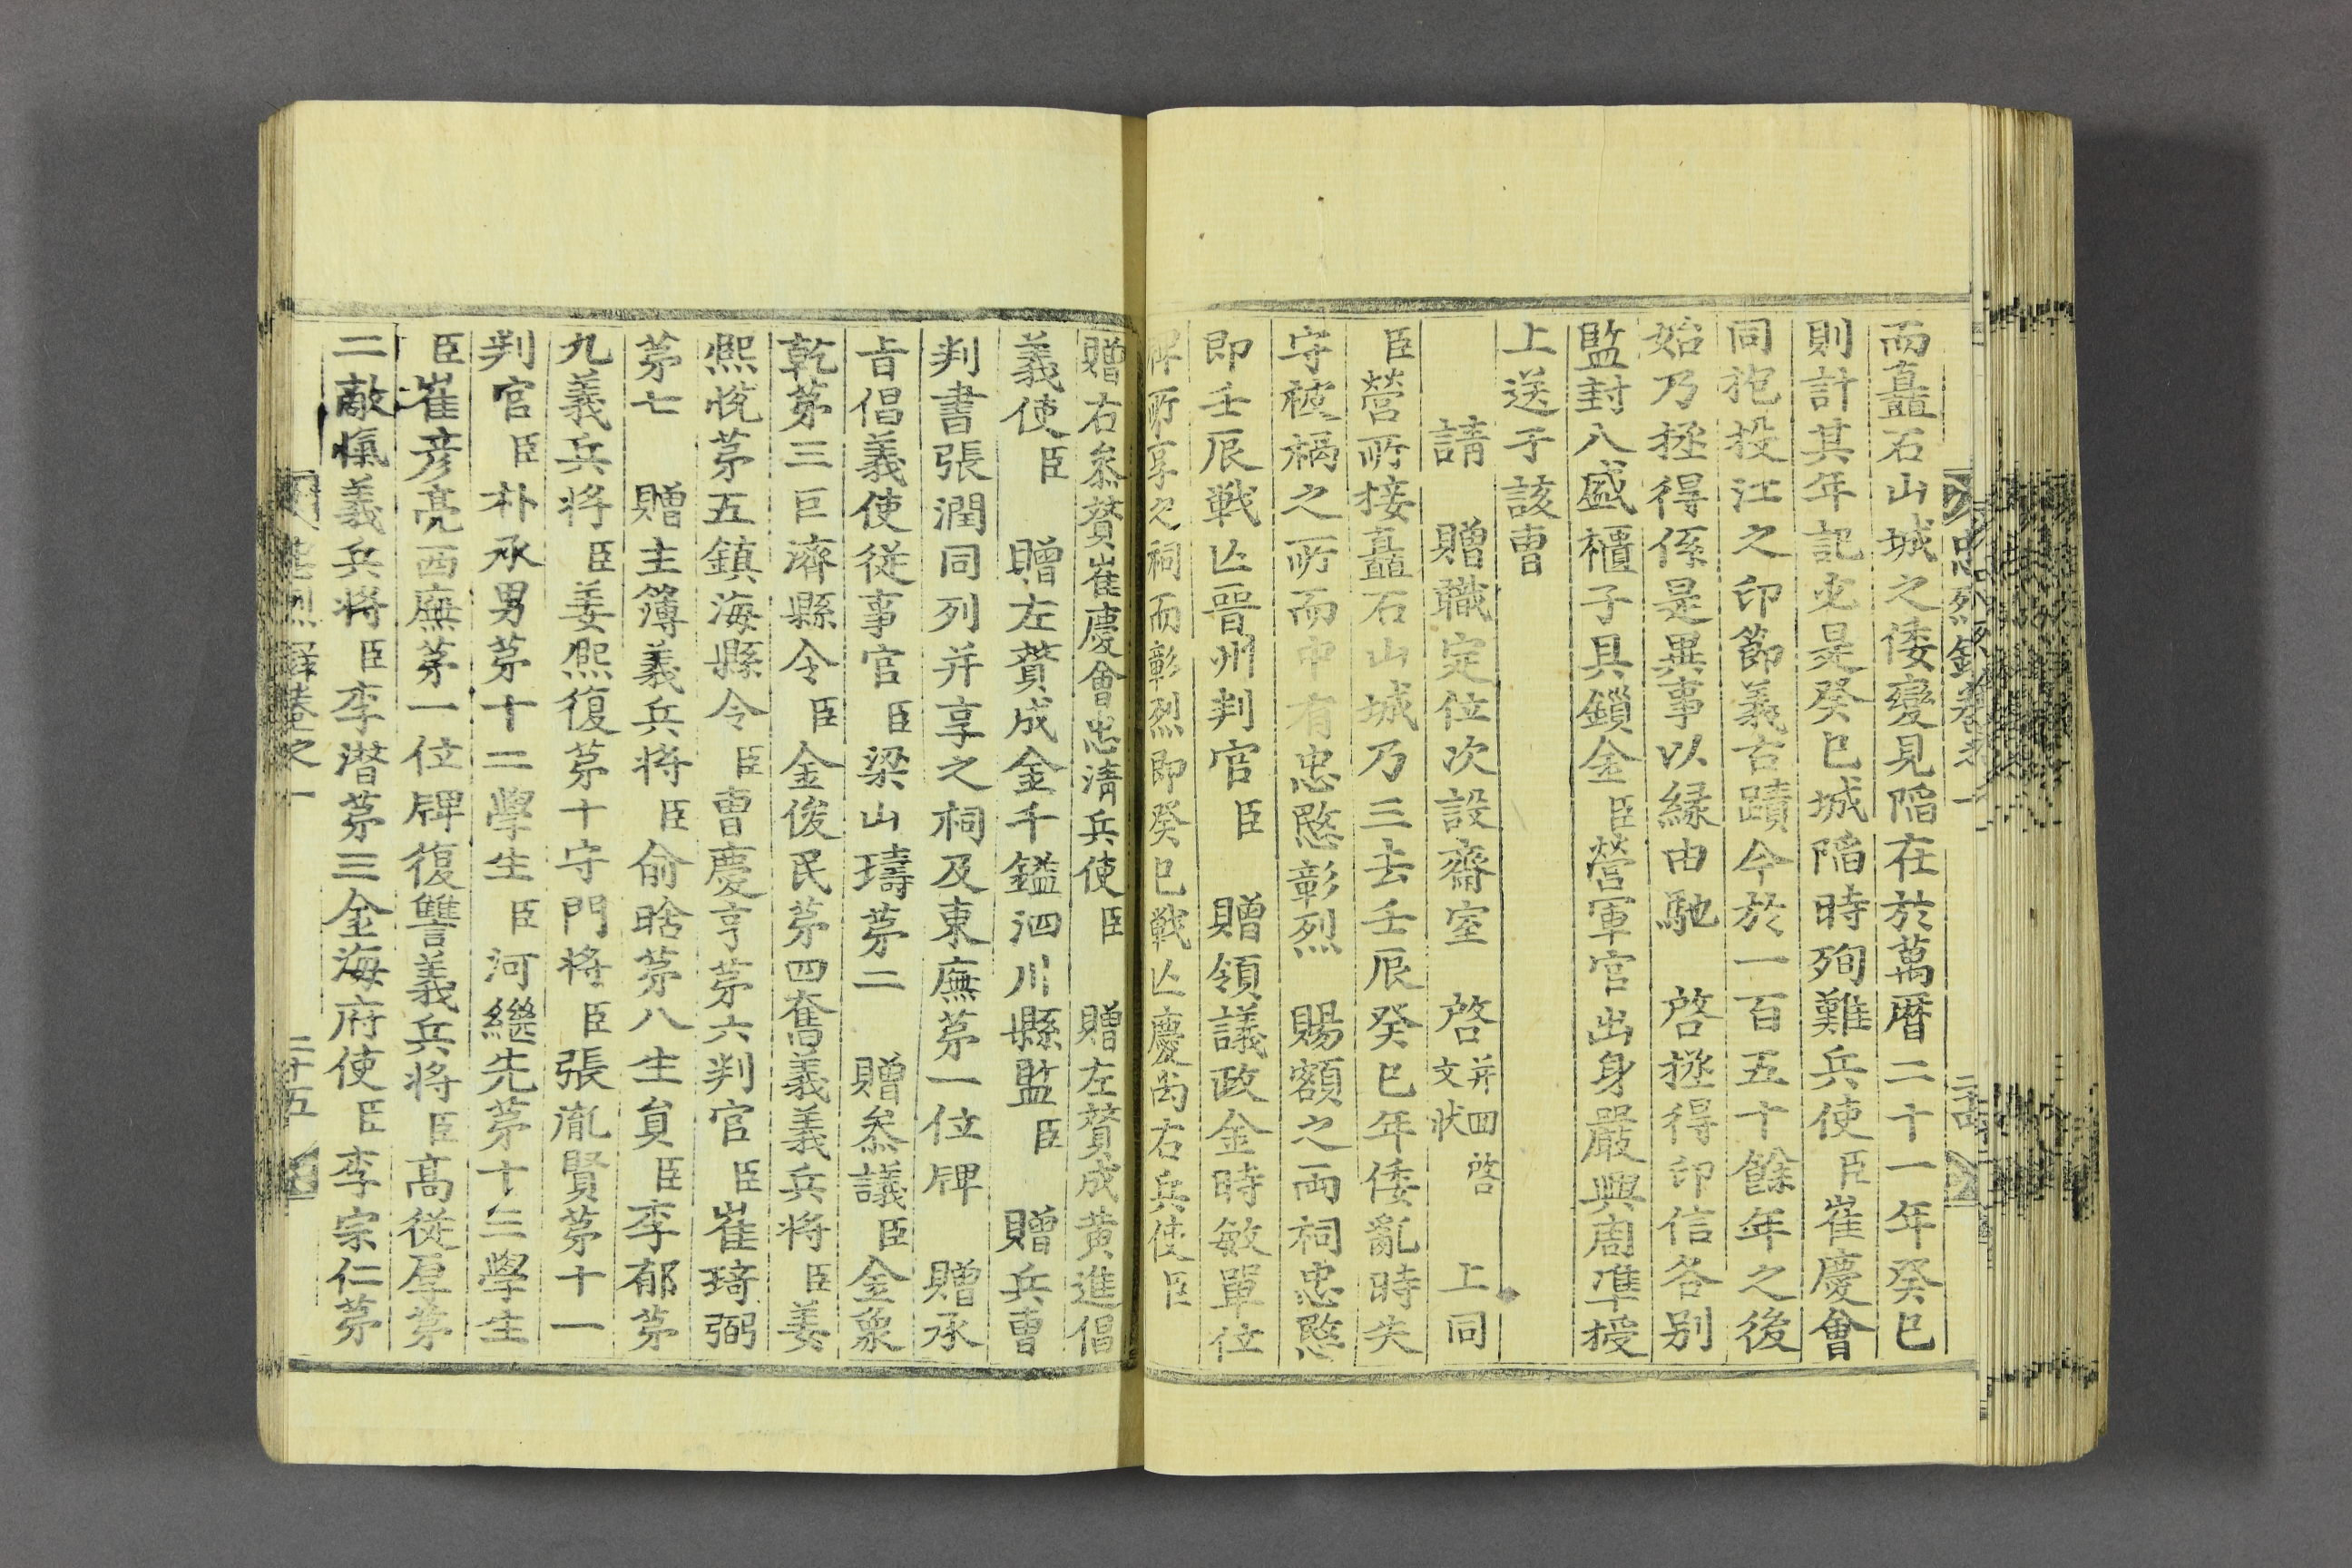 而矗石山城之倭變見陷在於萬曆二十一年癸巳
則計其年記必是癸巳城陷時殉難兵使臣崔慶會
同抱投江之印節義古蹟今於一百五十餘年之後
始乃拯得係是異事以緣由馳 啓拯得印信各別
監封八盛櫃子具鎖金臣營軍官出身嚴興周準授
上送于該曹
請 贈職定位次設齋室 啓并四啓文狀 上同
臣營所接矗石山城乃三去壬辰癸巳年倭亂時失
守被禍之所而中有忠愍彰烈 賜額之両祠忠愍
即壬辰戰亡晋州判官臣 贈領議政金時敏單位
牌所享之祠而彰烈即癸巳戰亡慶尙右兵使臣
贈右叅贊崔慶會忠淸兵使臣 贈左贊成黃進倡
義使臣 贈左贊成金千鎰泗川縣監臣 贈兵曹
判書張潤同列并享之祠及東廡第一位牌 贈承
旨倡義使從事官臣梁山璹第二 贈叅議臣金象
乾第三巨濟縣令臣金俊民第四奮義義兵将臣姜
熙悅第五鎭海縣令臣曹慶亨第六判官臣崔琦弼
第七 贈主簿義兵将臣俞晗第八生員臣李郁第
九義兵将臣姜熙復第十守門将臣張胤賢第十一
判官臣朴承男第十二學生臣河繼先第十三學生
臣崔彦亮西廡第一位牌復讐義兵将臣高從厚第
二敵愾義兵将臣李潜第三金海府使臣李宗仁第
忠烈錄卷之一 二十五